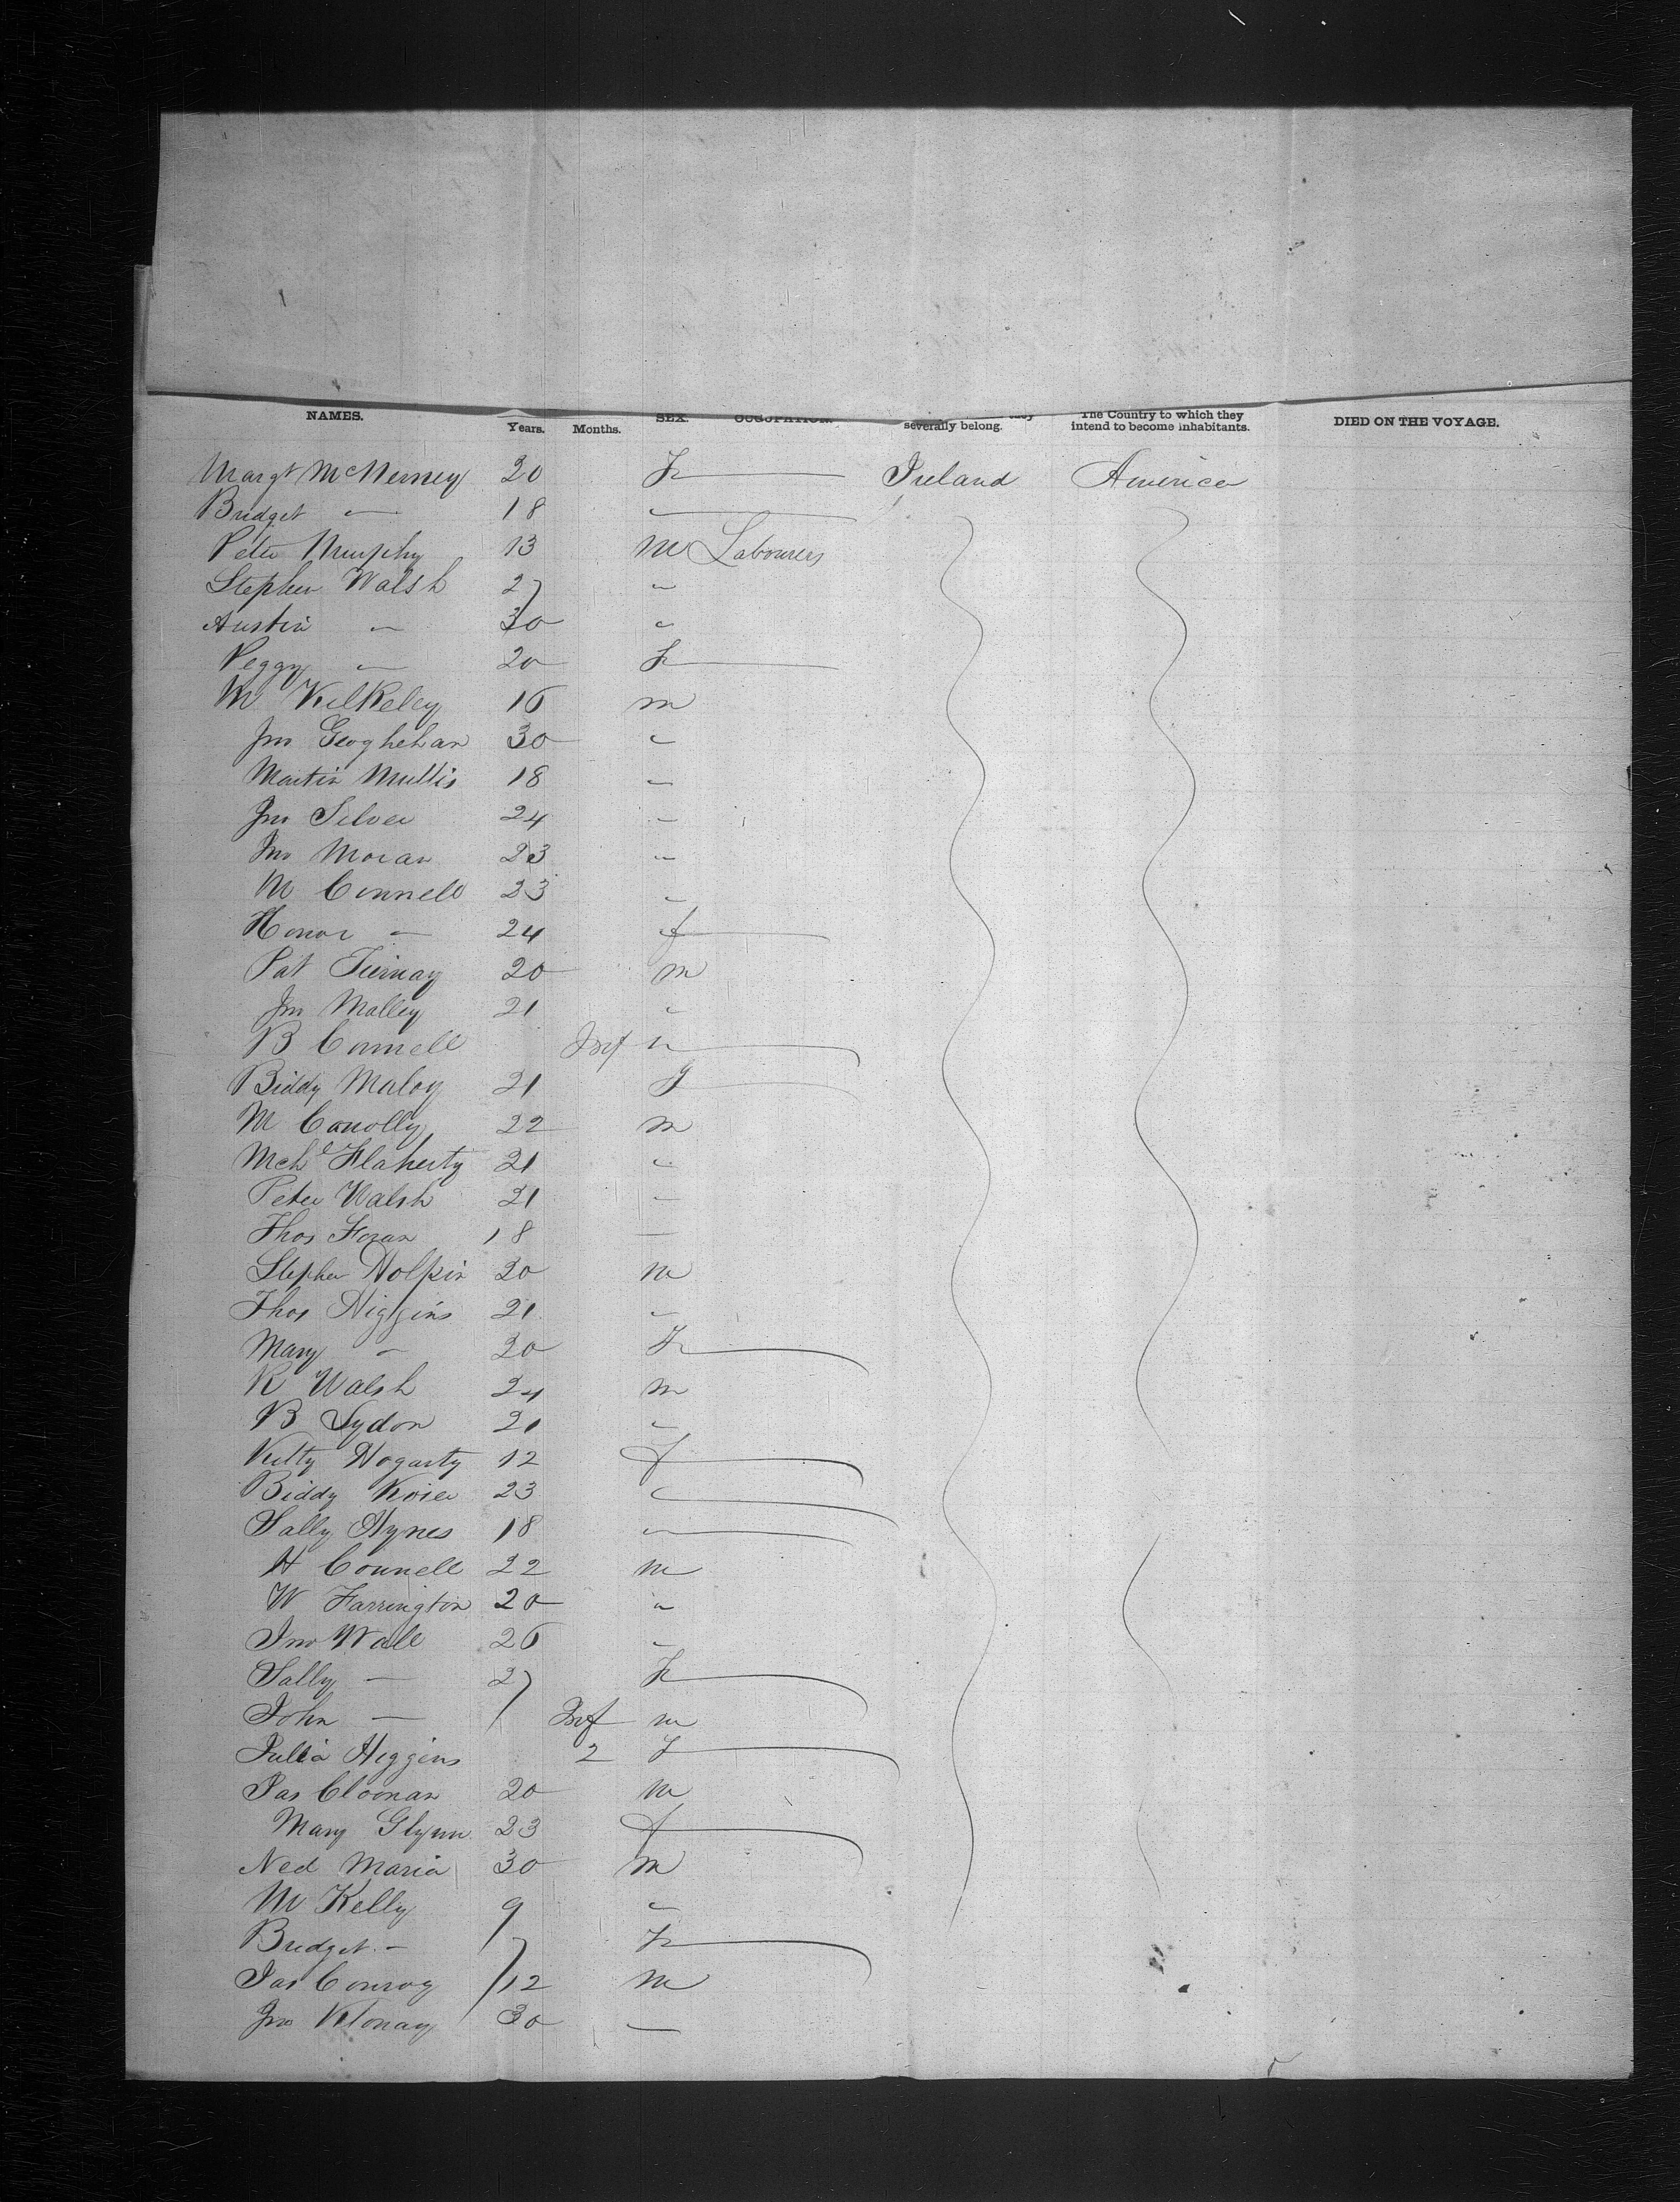 NAMES. Years. Months. SEX. OCCUPATION. severally belong. The Country to which they intend to become inhabitants. DIED ON THE VOYAGE.
Margt McNerney 20 F Ireland America
Bridget — 18 "
Peter Murphy 13 M Labourers
Stephen Walsh 27 "
Austin — 30 "
Peggy — 20 F
M Kilkeley 16 m
Jno Geoghehan 30 "
Martin Mullis 18 "
Jno Silver 24 "
Jno Moran 23 "
M Connell 23 "
Honor — 24 f
Pat Tiernay 20 m
Jno Malley 21 "
B Connell Inf "
Biddy Maloy 21 f
M Conolly 22 m
Mchl Flaherty 21 "
Peter Walsh 21 "
Thos Foran 18 "
Stephen Holpin 20 m
Thos Higgins 21 "
Mary — 20 F
R Walsh 24 m
B Lydon 21 "
Kitty Hogarty 12 f
Biddy 23 "
Sally Hynes 18 "
H Connell 22 m
W Farrington 20 "
Jno Wall 26 "
Sally — 27 F
John — Inf m
Julia Higgins 2 F
Jas Cloonan 20 m
Mary Glynn 23 f
Ned Maria 30 m
M Kelly 9 "
Bridget — 7 F
Jas Conroy 12 m
Jno 30 —